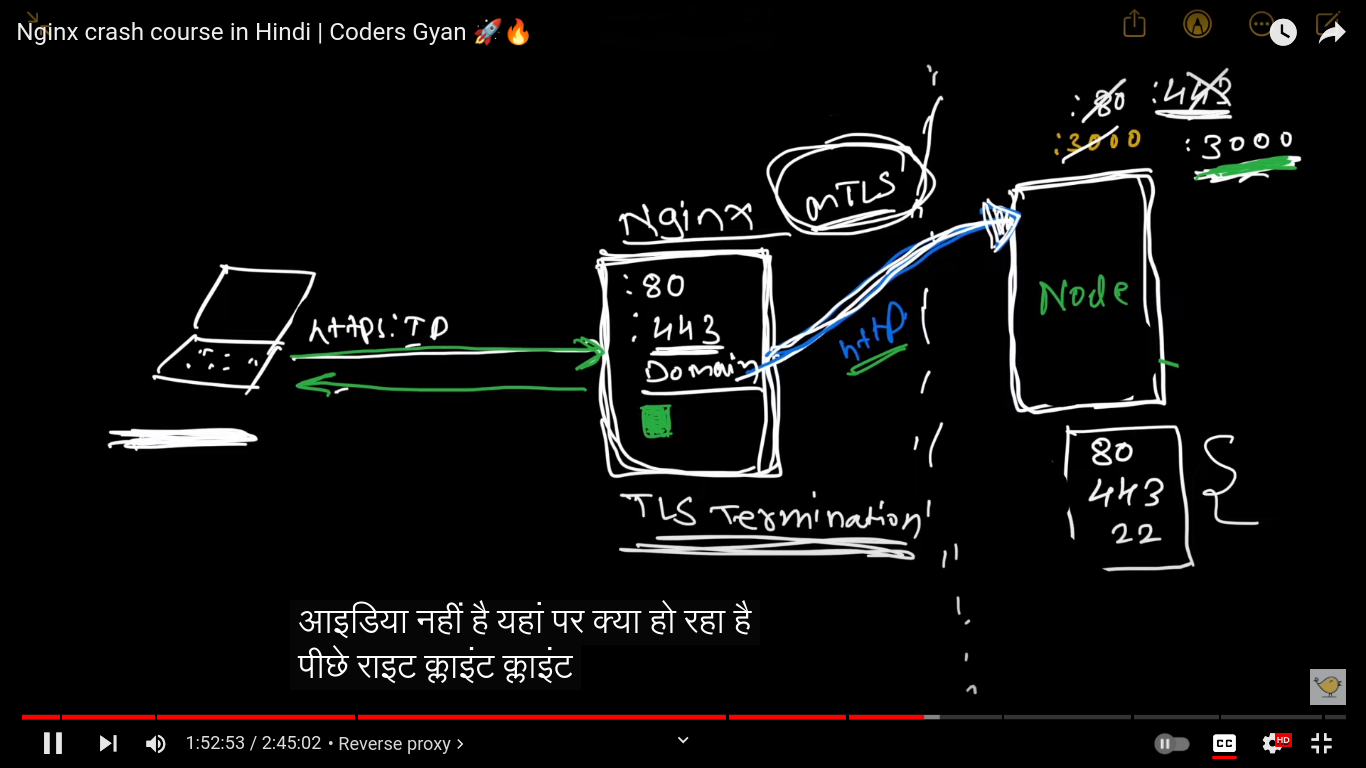 Nginx crash course in Hindi | Coders Gyan 🚀🔥
:80 :443
:3000 :3000
mTLS
Nginx
:80
:443
Domain
https: IP
http
Node
80
443
22
TLS Termination
आइडिया नहीं है यहां पर क्या हो रहा है
पीछे राइट क्लाइंट क्लाइंट
1:52:53 / 2:45:02 • Reverse proxy >
CC
HD